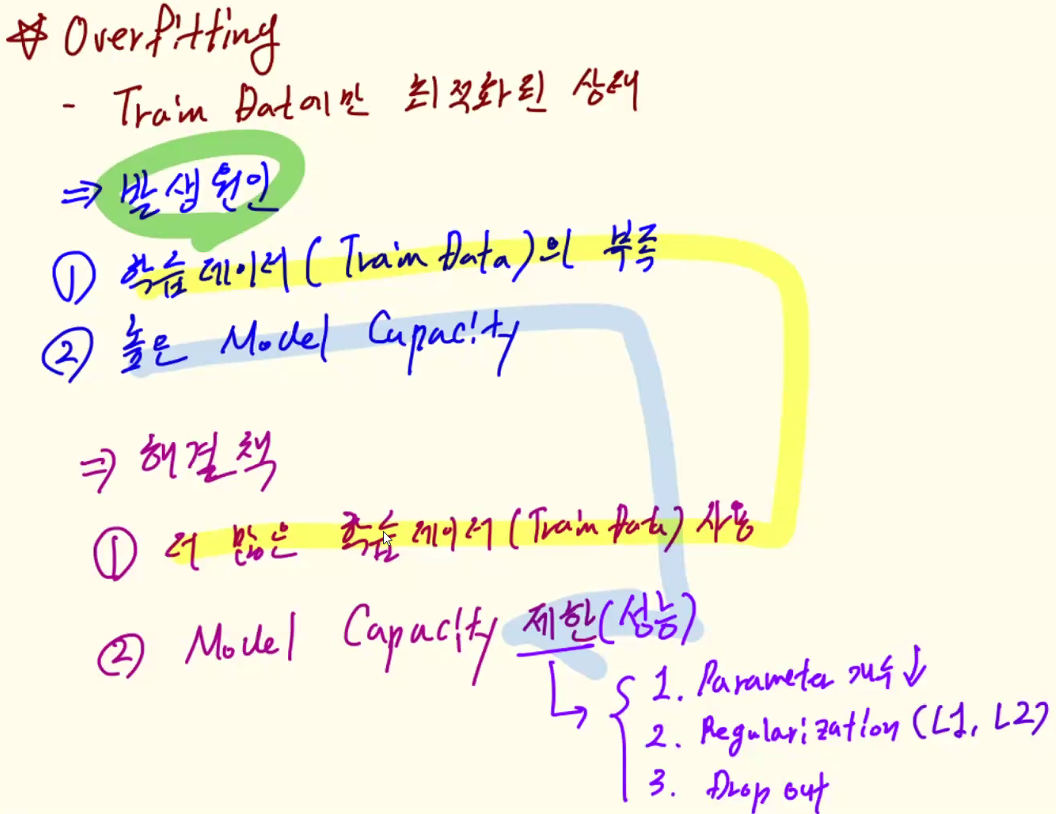 ☆ Overfitting
- Train Data에만 최적화된 상태
⇒ 발생원인
① 학습데이터(Train Data)의 부족
② 높은 Model Capacity
⇒ 해결책
① 더 많은 학습데이터(Train Data) 사용
② Model Capacity 제한(성능)
1. Parameter 개수↓
2. Regularization (L1, L2)
3. Drop out